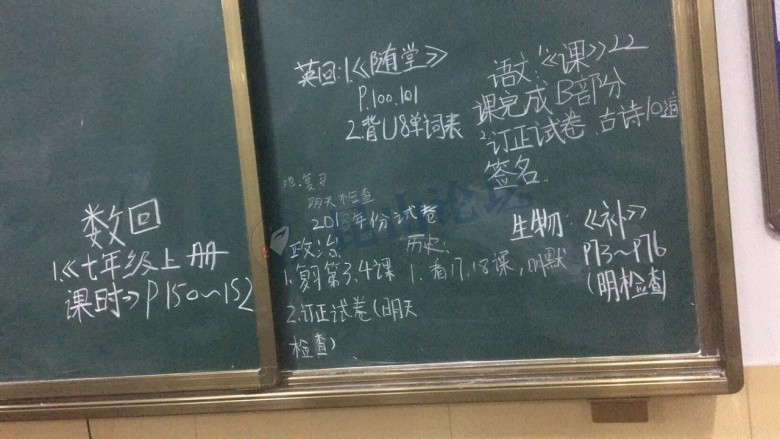 数回
1.《七年级上册
课时》P150~152
英回:1.《随堂》
P.100.101
2.背U8单词表
语文:《课》22
课完成B部分
2.订正试卷.古诗10遍
签名.
地.复习
明天检查
政治
1.复习第3.4课
2.订正试卷(明天
检查)
历史:
1.看17,18课,明默
生物:《补》
P73~P76
(明检查)
昆山论坛